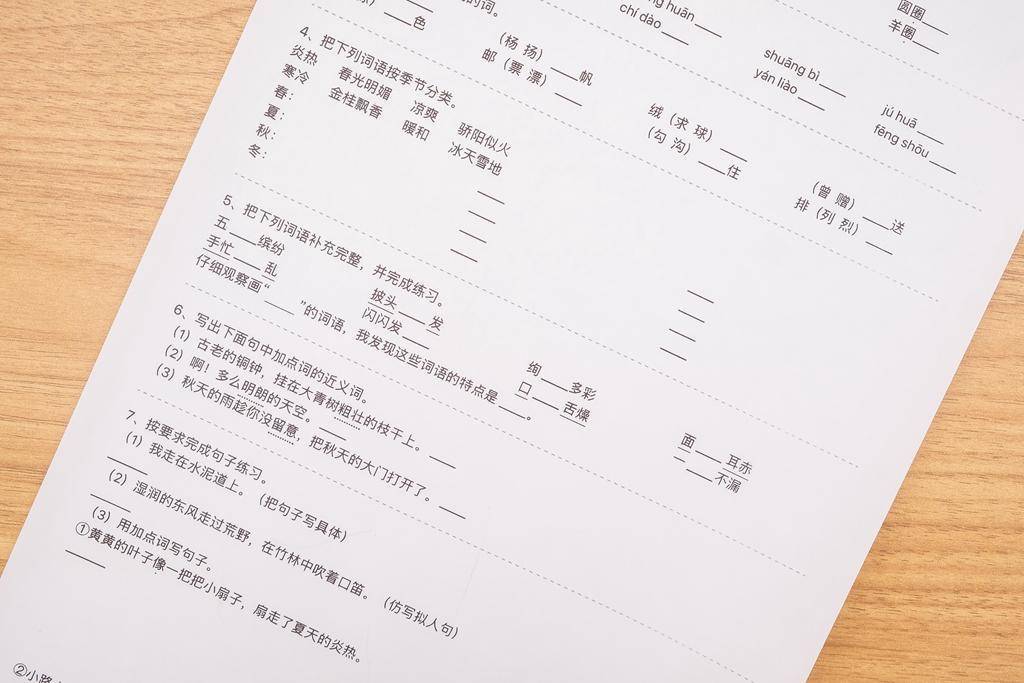 圆圈____
羊圈____
ng huān____ shuāng bì____ jú huā____
chí dào____ yán liào____ fēng shōu____
的词。
（杨 扬）____帆 绒（求 球）____ （曾 赠）____送
）____色 邮（票 漂）____ （勾 沟）____住 排（列 烈）____
4、把下列词语按季节分类。
炎热 春光明媚 凉爽 骄阳似火
寒冷 金桂飘香 暖和 冰天雪地
春： ____ ____
夏： ____ ____
秋： ____ ____
冬： ____ ____
5、把下列词语补充完整，并完成练习。
五____缤纷 披头____发 绚____多彩 面____耳赤
手忙____乱 闪闪发____ 口____舌燥 一____不漏
仔细观察画“____”的词语，我发现这些词语的特点是____。
6、写出下面句中加点词的近义词。
（1）古老的铜钟，挂在大青树粗壮的枝干上。____
（2）啊！多么明朗的天空。____
（3）秋天的雨趁你没留意，把秋天的大门打开了。____
7、按要求完成句子练习。
（1）我走在水泥道上。（把句子写具体）
____
（2）湿润的东风走过荒野，在竹林中吹着口笛。（仿写拟人句）
____
（3）用加点词写句子。
①黄黄的叶子像一把把小扇子，扇走了夏天的炎热。
____
②小路